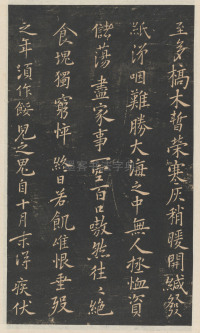 至多槁木暫榮寒灰稍暖開緘發
紙涕咽難勝大海之中無人拯恤資
儲蕩盡家事一空百口嗷然往往絕
食塊獨窮悴終日苦飢惟恨垂歿
之年須作餒而之鬼自十月末得疾伏